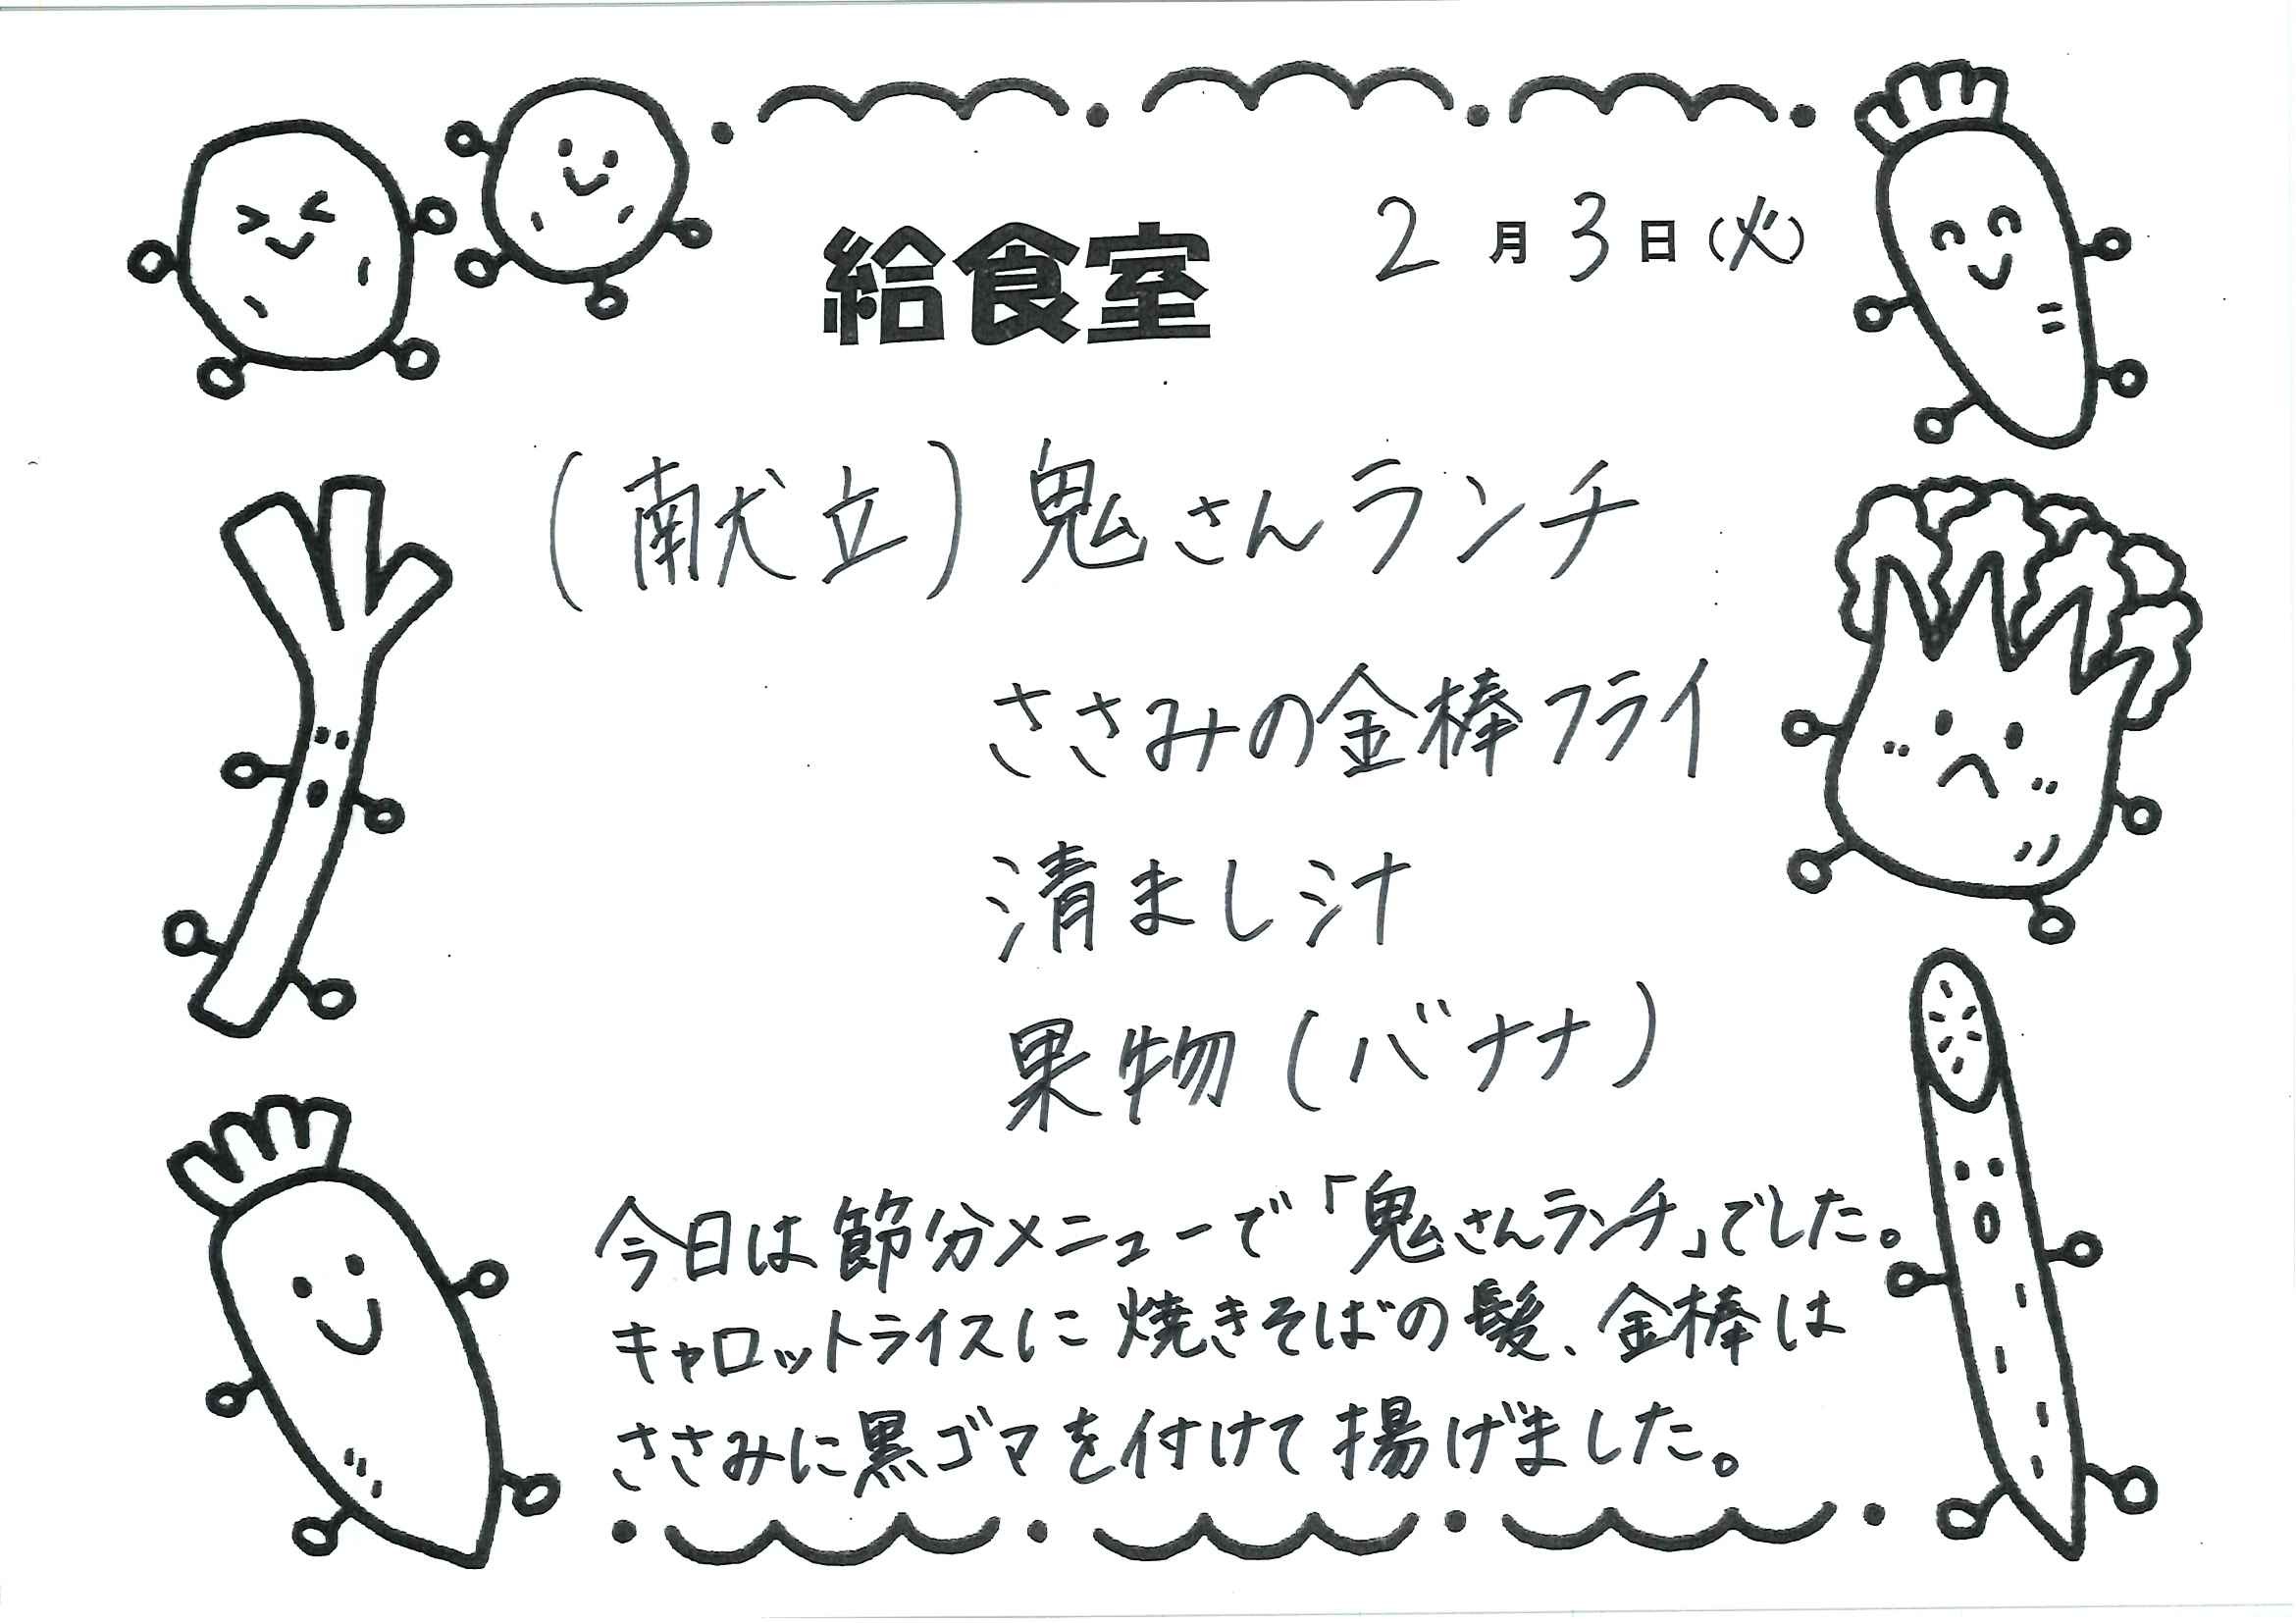 給食室 2月3日(火)
(献立)鬼さんランチ
ささみの金棒フライ
清まし汁
果物(バナナ)
今日は節分メニューで「鬼さんランチ」でした。
キャロットライスに焼きそばの髪、金棒は
ささみに黒ゴマを付けて揚げました。